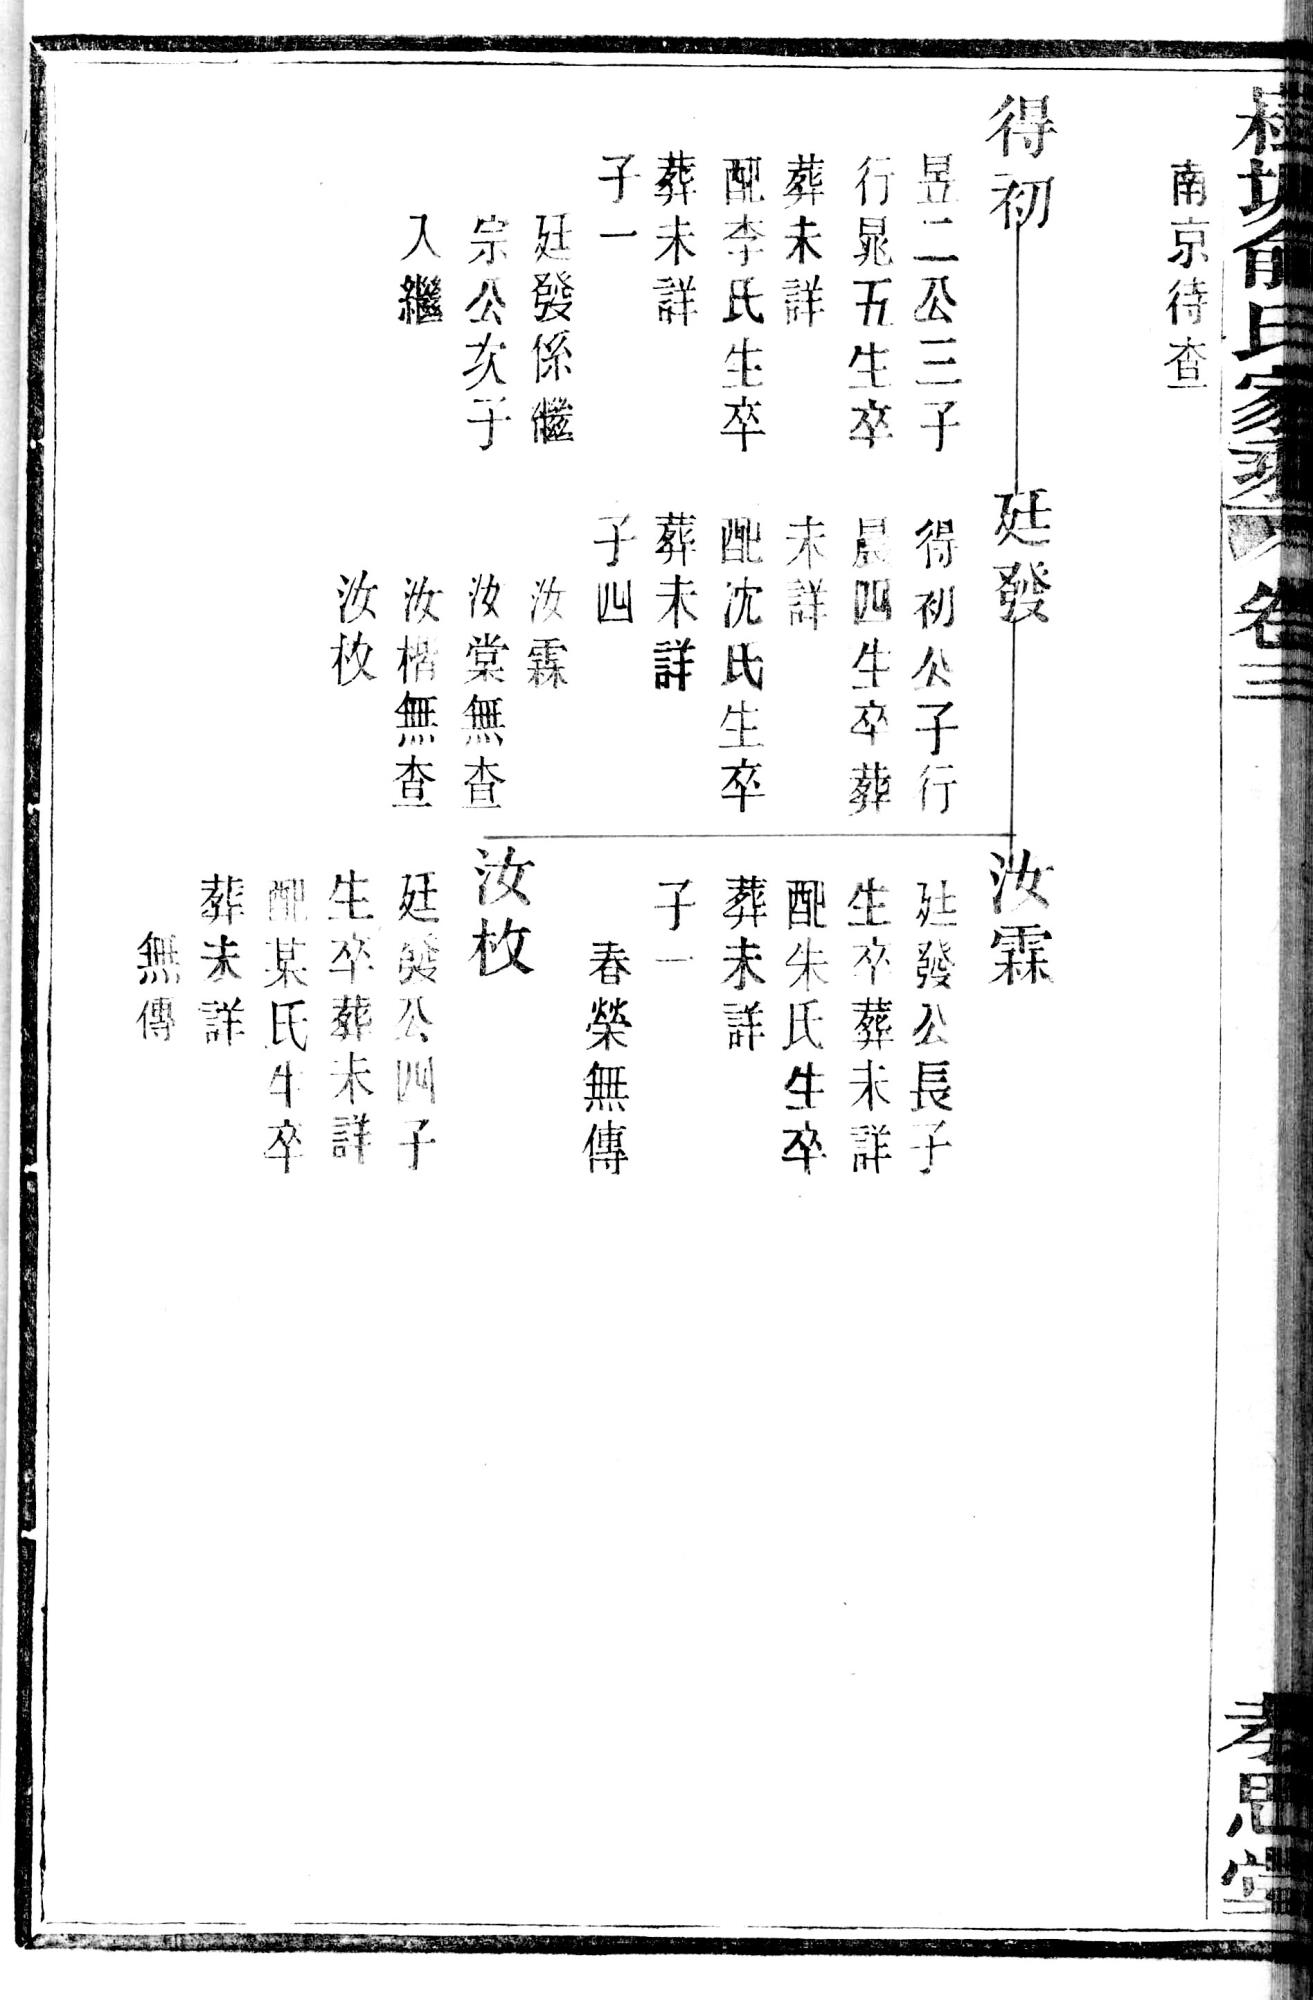 俞氏家乘
卷三
孝思堂
南京待查
得初
昱二公三子
行晁五生卒
葬未詳
配李氏生卒
葬未詳
子一
廷發係繼
宗公次子
入繼
廷發
得初公子行
晨四生卒葬
未詳
配沈氏生卒
葬未詳
子四
汝霖
汝棠無查
汝楷無查
汝枚
汝霖
廷發公長子
生卒葬未詳
配朱氏生卒
葬未詳
子一
春榮無傳
汝枚
廷發公四子
生卒葬未詳
配某氏生卒
葬未詳
無傳